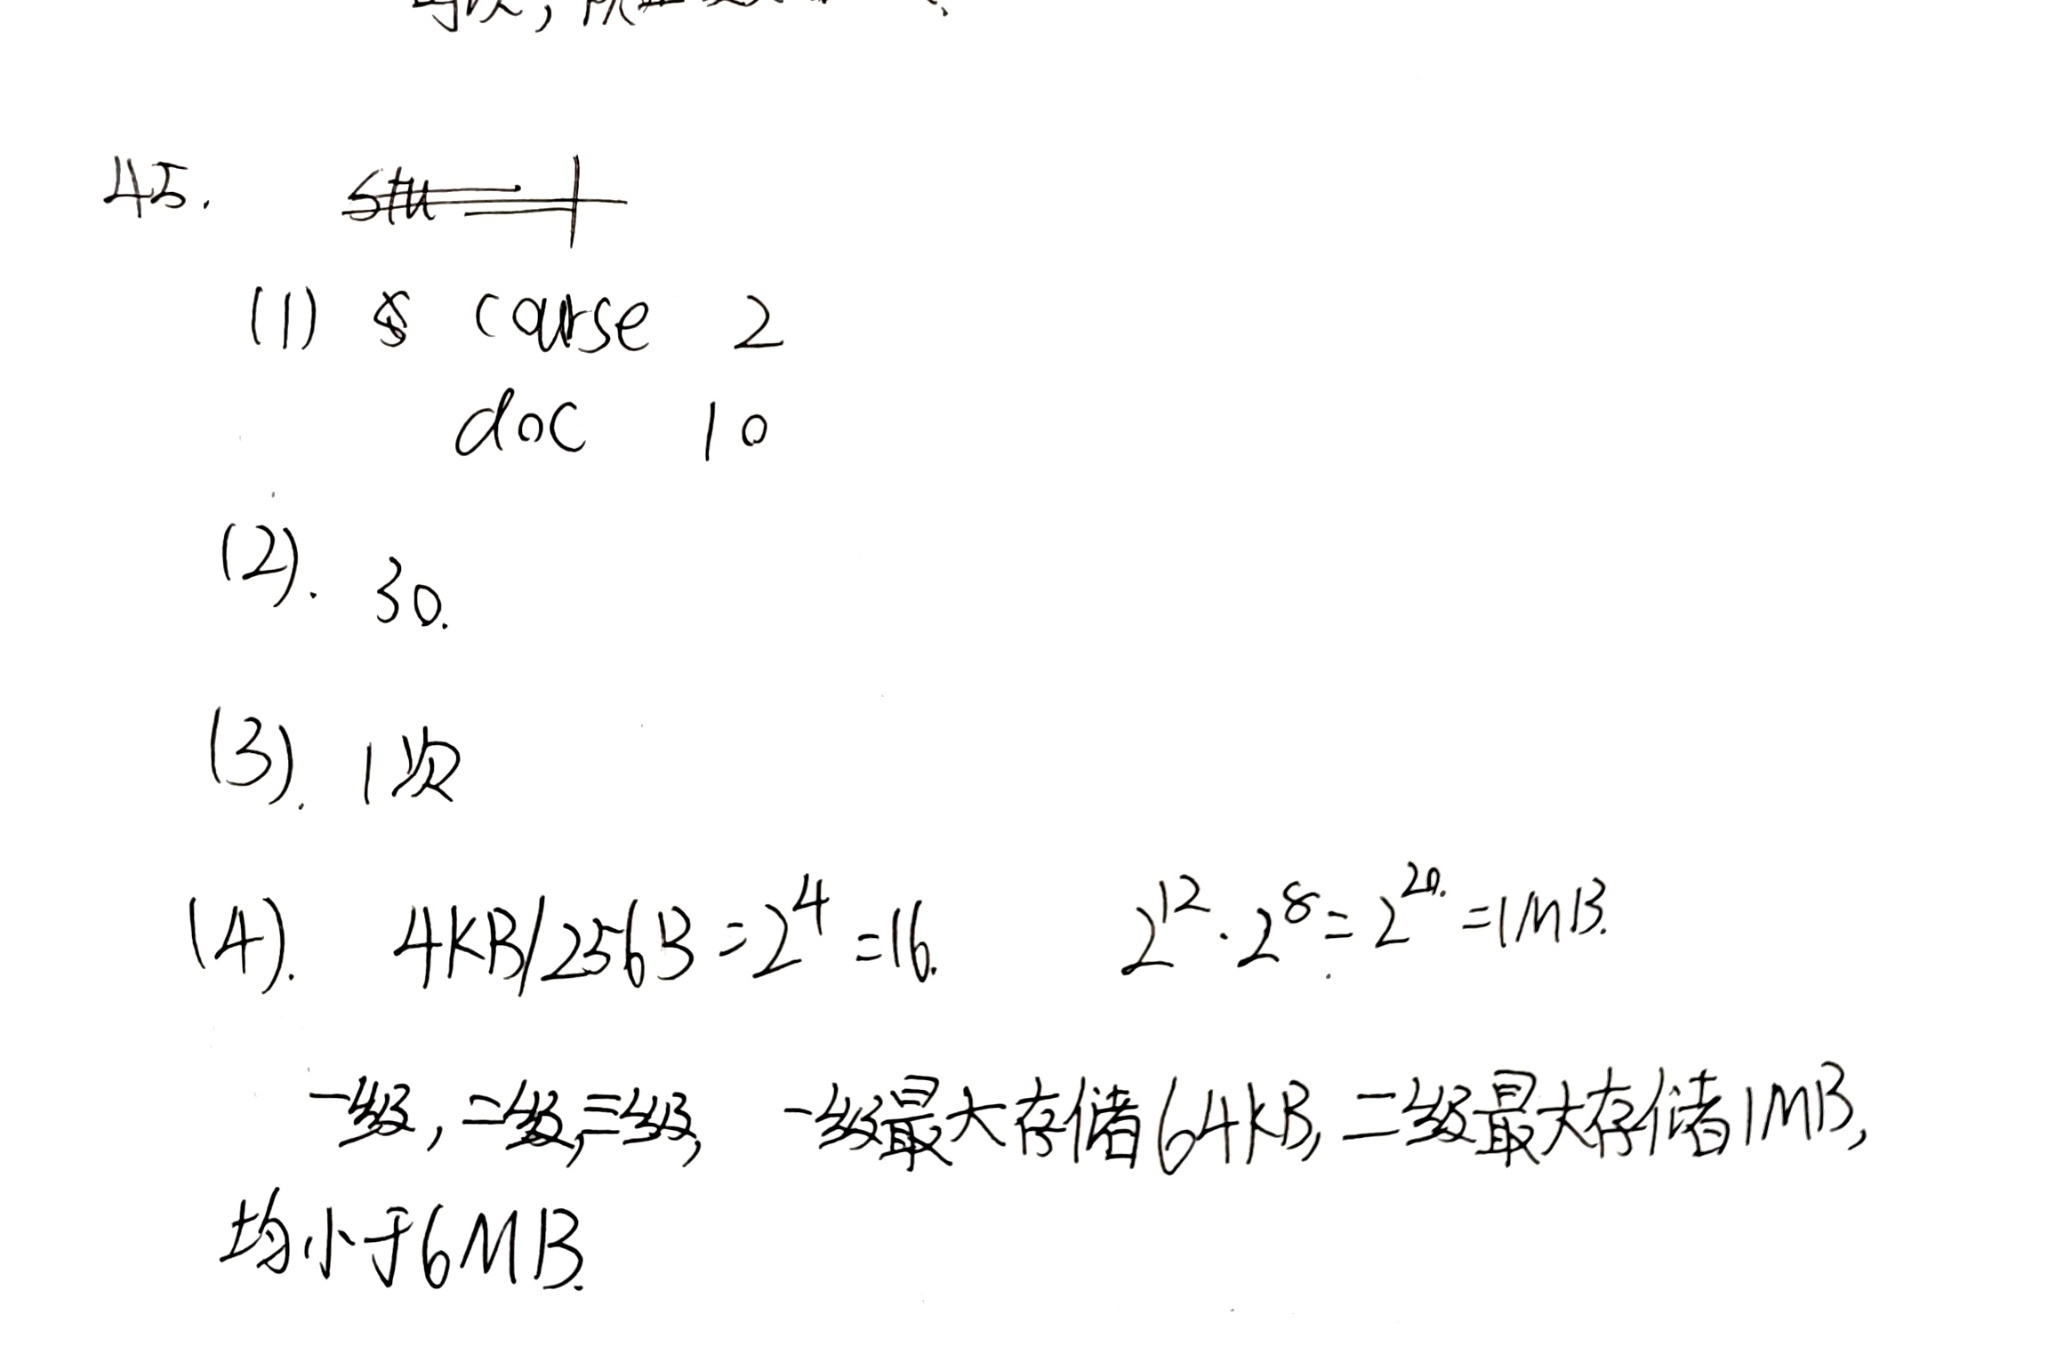 45.
(1) course 2
doc 10
(2). 30.
(3). 1次
(4). 4KB/256B=2^4=16. 2^12·2^8=2^20=1MB.
一级,二级,三级, 一级最大存储64KB,二级最大存储1MB,
均小于6MB.